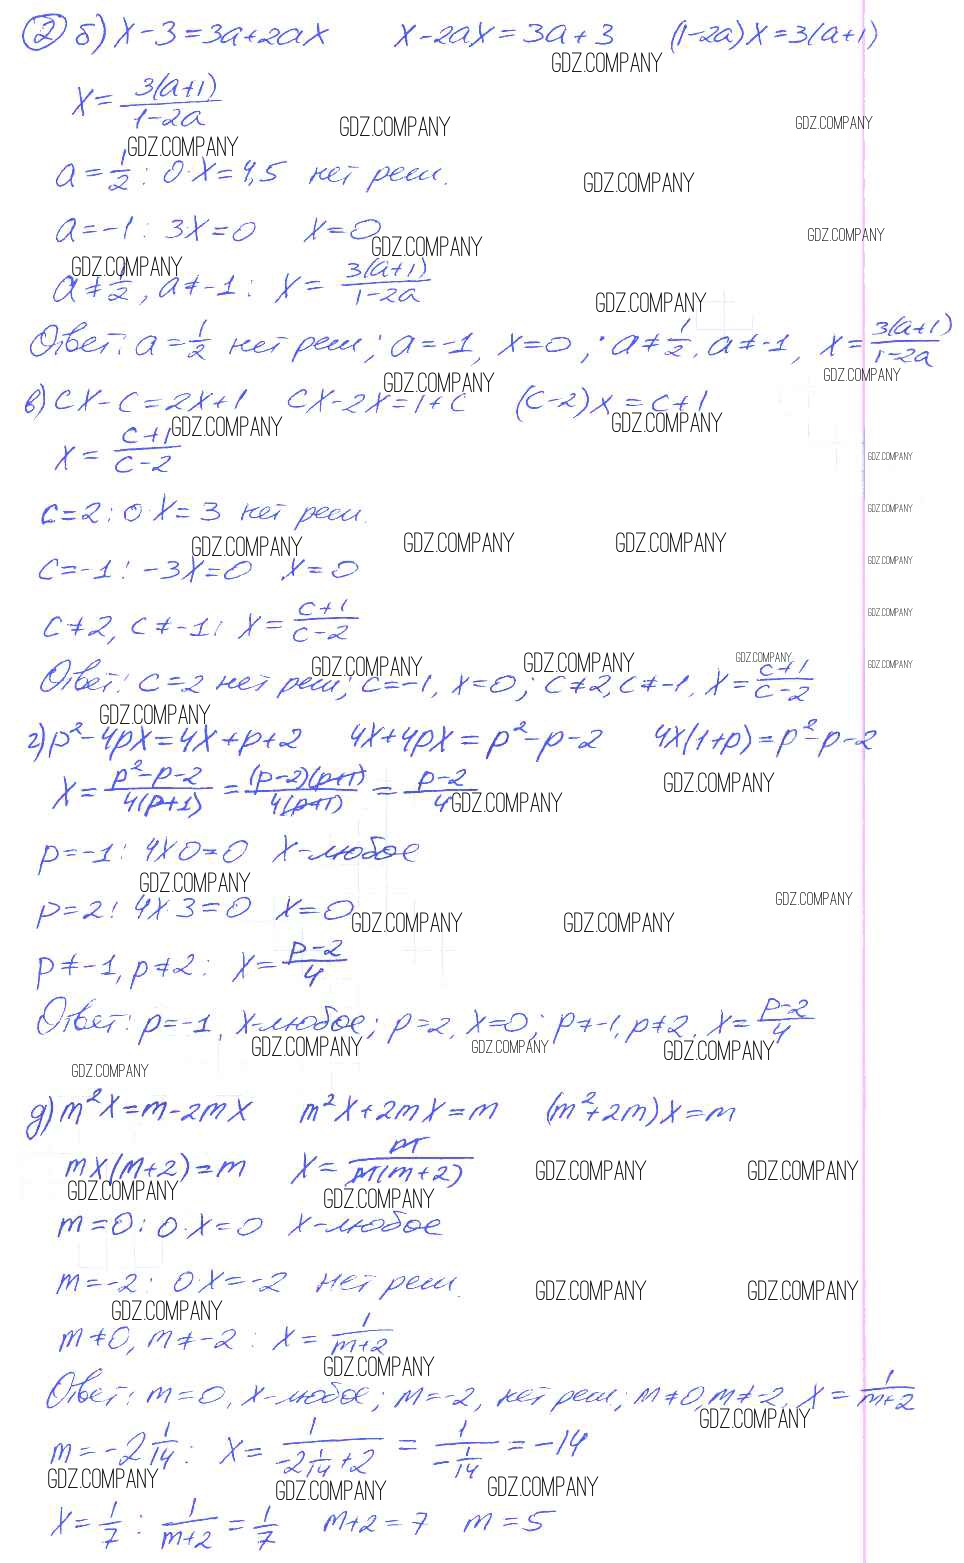 ② б) x-3=3a+2ax x-2ax=3a+3 (1-2a)x=3(a+1)
GDZ.COMPANY
x=3(a+1)/(1-2a)
GDZ.COMPANY GDZ.COMPANY
GDZ.COMPANY
a=1/2: 0·x=4,5 нет реш.
GDZ.COMPANY
a=-1: 3x=0 x=0
GDZ.COMPANY GDZ.COMPANY
GDZ.COMPANY
a≠1/2, a≠-1: x=3(a+1)/(1-2a)
GDZ.COMPANY
Ответ: a=1/2 нет реш; a=-1, x=0; a≠1/2, a≠-1, x=3(a+1)/(1-2a)
GDZ.COMPANY GDZ.COMPANY
в) cx-c=2x+1 cx-2x=1+c (c-2)x=c+1
GDZ.COMPANY GDZ.COMPANY
x=(c+1)/(c-2)
GDZ.COMPANY
c=2: 0·x=3 нет реш.
GDZ.COMPANY
GDZ.COMPANY GDZ.COMPANY GDZ.COMPANY
c=-1: -3x=0 x=0
GDZ.COMPANY
c≠2, c≠-1: x=(c+1)/(c-2)
GDZ.COMPANY
GDZ.COMPANY GDZ.COMPANY GDZ.COMPANY GDZ.COMPANY
Ответ: c=2 нет реш; c=-1, x=0; c≠2, c≠-1, x=(c+1)/(c-2)
GDZ.COMPANY
г) p²-4px=4x+p+2 4x+4px=p²-p-2 4x(1+p)=p²-p-2
GDZ.COMPANY
x=(p²-p-2)/(4(p+1))=((p-2)(p+1))/(4(p+1))=(p-2)/4
GDZ.COMPANY
p=-1: 4x0=0 x-любое
GDZ.COMPANY GDZ.COMPANY
p=2: 4x·3=0 x=0
GDZ.COMPANY GDZ.COMPANY
p≠-1, p≠2: x=(p-2)/4
Ответ: p=-1, x-любое; p=2, x=0; p≠-1, p≠2, x=(p-2)/4
GDZ.COMPANY GDZ.COMPANY GDZ.COMPANY
GDZ.COMPANY
д) m²x=m-2mx m²x+2mx=m (m²+2m)x=m
mx(m+2)=m x=m/(m(m+2))
GDZ.COMPANY GDZ.COMPANY
GDZ.COMPANY GDZ.COMPANY
m=0: 0·x=0 x-любое
m=-2: 0·x=-2 нет реш.
GDZ.COMPANY GDZ.COMPANY
GDZ.COMPANY
m≠0, m≠-2: x=1/(m+2)
GDZ.COMPANY
Ответ: m=0, x-любое; m=-2, нет реш; m≠0, m≠-2, x=1/(m+2)
GDZ.COMPANY
m=-2 1/14: x=1/(-2 1/14+2)=1/(-1/14)=-14
GDZ.COMPANY GDZ.COMPANY GDZ.COMPANY
x=1/7: 1/(m+2)=1/7 m+2=7 m=5